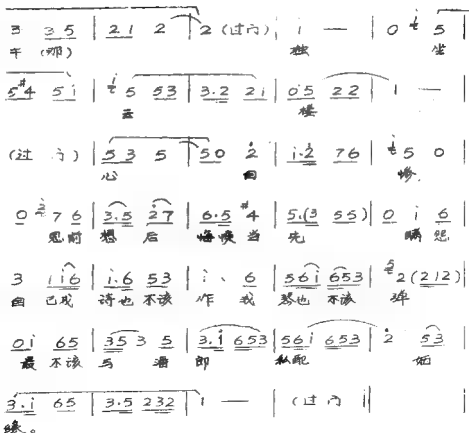 3 3 5 | 2 1 2 | 2 (过门) | i — | 0 5
午 (那) 独 坐
5 #4 5 i | 5 5 3 | 3.2 2 i | 0 5 2 2 | 1 —
云 楼
(过门) | 5 3 5 | 5 0 2 | i.2 7 6 | 5 0
心 自 惨.
0 7 6 | 3.5 2 7 | 6.5 #4 | 5.(3 5 5) | 0 i 6
思前 想 后 悔恨 当 先 瞒怨
3 i i 6 | i.6 5 3 | i. 6 | 5 6 i 6 5 3 | 2 (2 1 2)
自 己我 诗也 不该 作 我 琴也 不该 弹
0 i 6 5 | 3 5 3 5 | 3.i 6 5 3 | 5 6 i 6 5 3 | 2 5 3
最 不该 与 潘 郎 私配
3.i 6 5 | 3.5 2 3 2 | 1 — | (过门 |
缘。